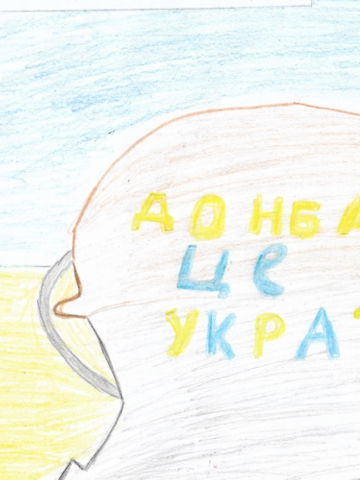 ДОНБА
Це
УКРА